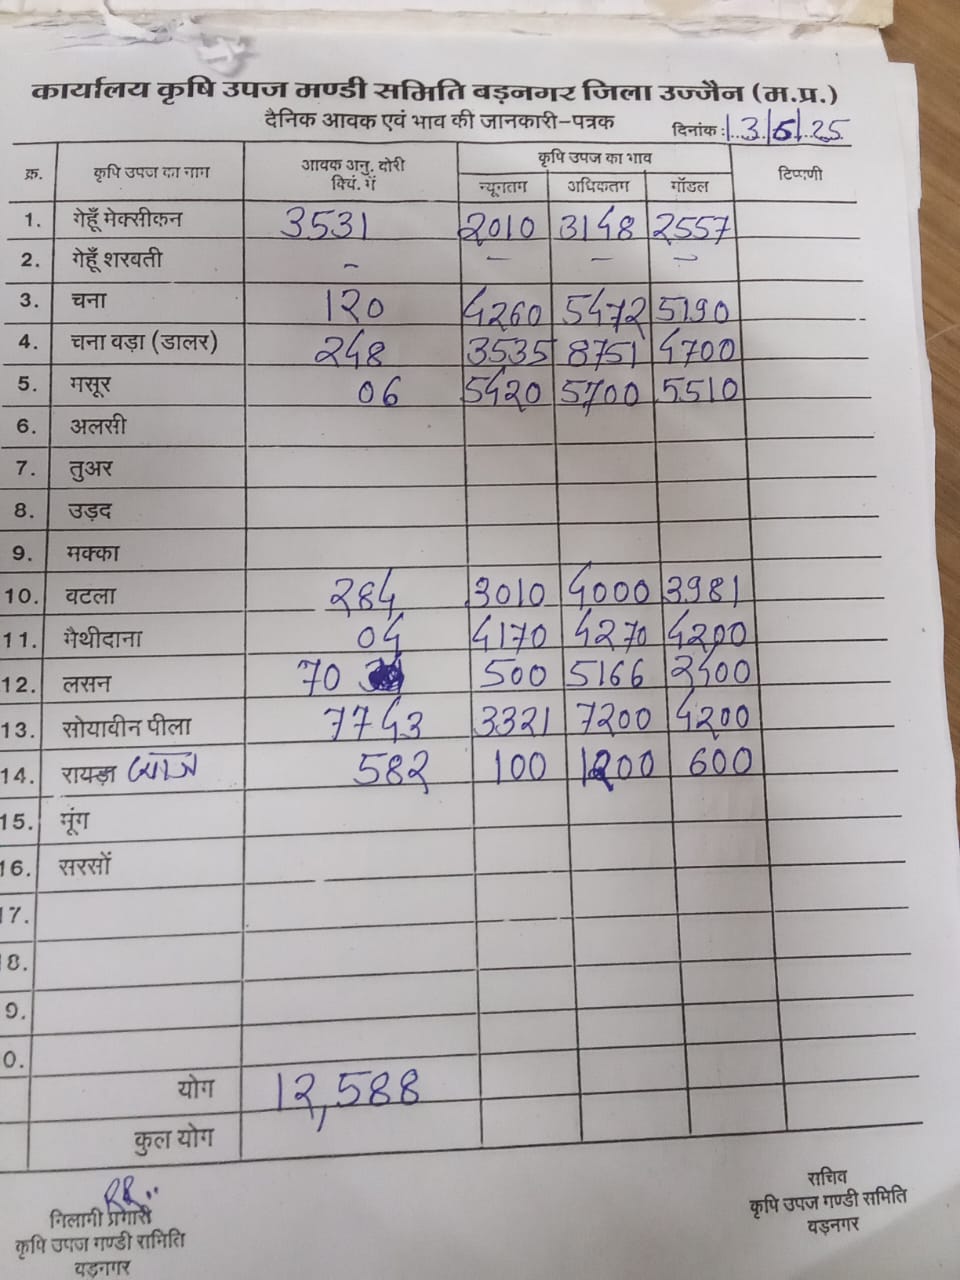 कार्यालय कृषि उपज मण्डी समिति बड़नगर जिला उज्जैन (म.प्र.)
दैनिक आवक एवं भाव की जानकारी-पत्रक दिनांक : 13/5/25
क्र. कृषि उपज का नाम आवक अनु. बोरी क्विं. में कृषि उपज का भाव टिप्पणी
न्यूनतम अधिकतम मॉडल
1. गेहूँ मेक्सीकन 3531 2010 3148 2557
2. गेहूँ शरबती - - - -
3. चना 120 4260 5472 5190
4. चना बड़ा (डालर) 248 3535 8751 4700
5. मसूर 06 5420 5700 5510
6. अलसी
7. तुअर
8. उड़द
9. मक्का
10. बटला 284 3010 4000 3981
11. मैथीदाना 04 4170 4270 4200
12. लसन 70 500 5166 2400
13. सोयाबीन पीला 7743 3321 7200 4200
14. रायड़ा प्याज 582 100 1200 600
15. मूंग
16. सरसों
17.
18.
9.
0.
योग 12,588
कुल योग
निलामी प्रभारी
कृषि उपज मण्डी समिति
बड़नगर
सचिव
कृषि उपज मण्डी समिति
बड़नगर